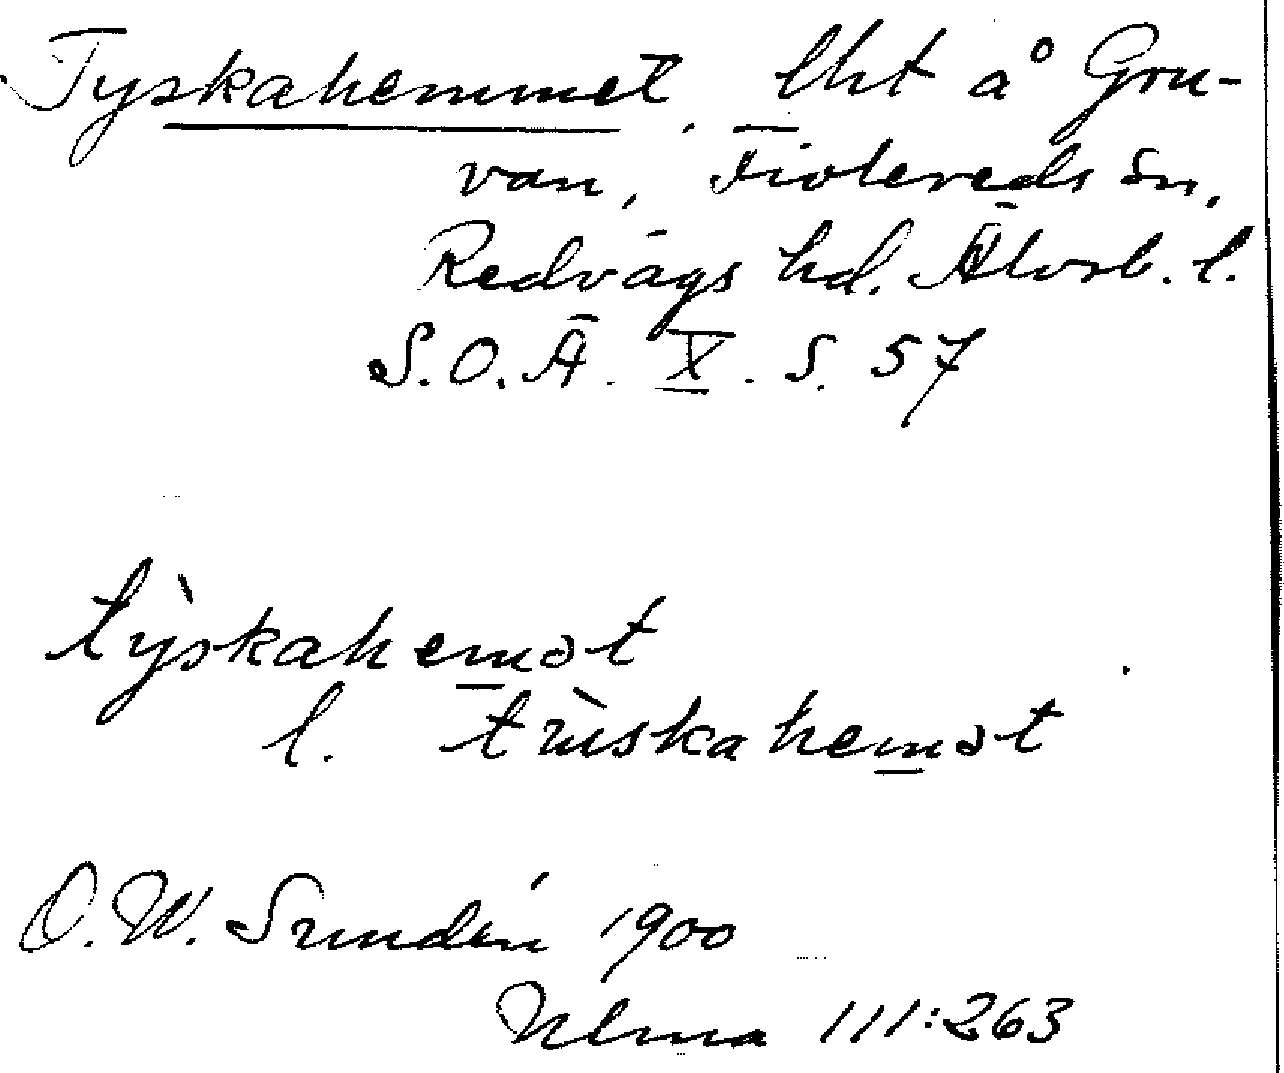 Tyskahemmet, lht å Gru-
van, Tiolereds sn,
Redvägs hd. Älvsb. l.
S.O.Ä. X. S. 57
tỳskahemǝt
l. trùskahemǝt
O.W. Sundén 1900
Ulma 111:263